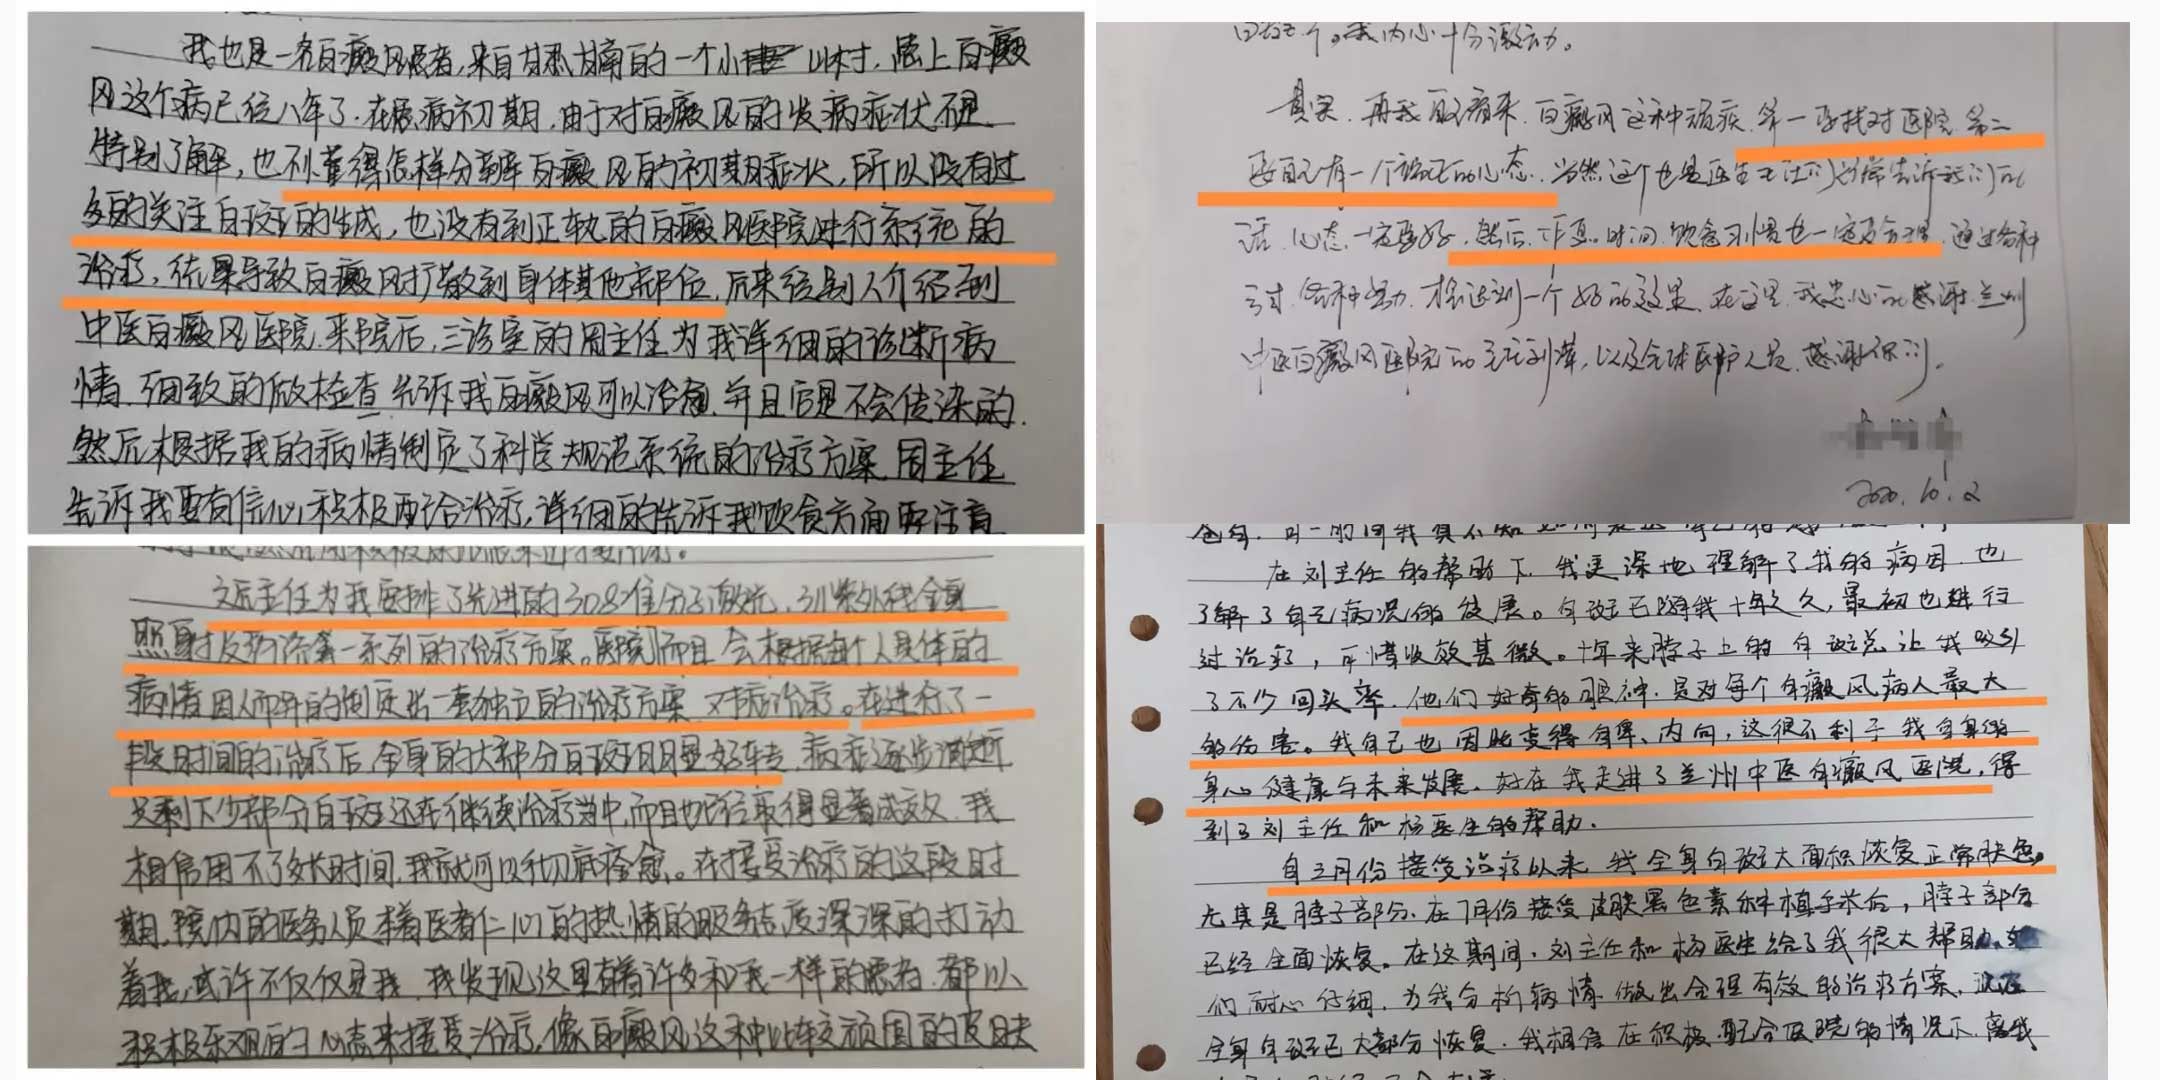 我也是一名白癜风患者,来自甘肃甘南的一个小山村,患上白癜
风这个病已经八年了.在患病初期,由于对白癜风的发病症状不是
特别了解,也不懂得怎样分辨白癜风的初期症状,所以没有过
多的关注白斑的生成,也没有到正规的白癜风医院进行系统的
治疗,结果导致白癜风扩散到身体其他部位,后来经别人介绍到
中医白癜风医院.来院后,三诊室的周主任为我详细的诊断病
情,细致的做检查告诉我白癜风可以治愈,并且它是不会传染的.
然后根据我的病情制定了科学规范系统的治疗方案.周主任
告诉我要有信心,积极配合治疗,详细的告诉我饮食方面要注意
主任为我安排了先进的308准分子激光,311紫外线全身
照射及药浴等一系列的治疗方案。医院而且会根据每个人具体的
病情因人而异的制定出一套独立的治疗方案,对症治疗。在进行了一
段时间的治疗后,全身的大部分白斑明显好转,病症逐步消逝
只剩下少部分白斑还在继续治疗当中,而且也已经取得显著成效.我
相信用不了多长时间,我就可以彻底痊愈。在接受治疗的这段时
期,院内的医务人员本着医者仁心的热情的服务态度深深的打动
着我,或许不仅仅是我.我发现这里有着许多和我一样的患者,都以
积极乐观的心态来接受治疗,像白癜风这种比较顽固的皮肤
我内心十分激动。
其实,再我看来,白癜风这种顽疾,第一要找对医院,第二
要自己有一个端正的心态.当然这个也是医生主任们经常告诉我们的
话,心态一定要好,然后,作息时间,饮食习惯也一定要合理,通过各种
各种努力,才能达到一个好的效果.在这里,我忠心的感谢兰州
中医白癜风医院的主任刘萍,以及全体医护人员.感谢你们.
2020.10.2
在刘主任的帮助下,我更深地理解了我的病因,也
了解了自己病况的发展。白斑已随我十年之久,最初也进行
过治疗,可惜收效甚微。十年来脖子上的白斑总让我吸引
了不少回头率,他们好奇的眼神,是对每个白癜风病人最大
的伤害。我自己也因此变得自卑、内向,这很不利于我自身的
身心健康与未来发展。好在我走进了兰州中医白癜风医院,得
到了刘主任和杨医生的帮助.
自三月份接受治疗以来,我全身白斑大面积恢复正常肤色。
尤其是脖子部分,在7月份接受皮肤黑色素种植手术后,脖子部分
已经全面恢复。在这期间,刘主任和杨医生给了我很大帮助,她
们耐心仔细,为我分析病情,做出合理有效的治疗方案,现在
全身白斑已大部分恢复.我相信在积极配合医院的情况下,离我